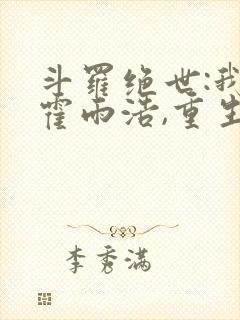 斗罗绝世:我
霍雨浩,重生
李秀满